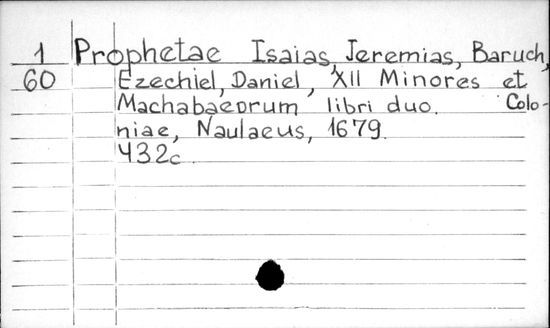 1 Prophetae Isaias, Jeremias, Baruch,
60 Ezechiel, Daniel, XII Minores et
Machabaeorum libri duo. Colo-
niae, Naulaeus, 1679.
432c